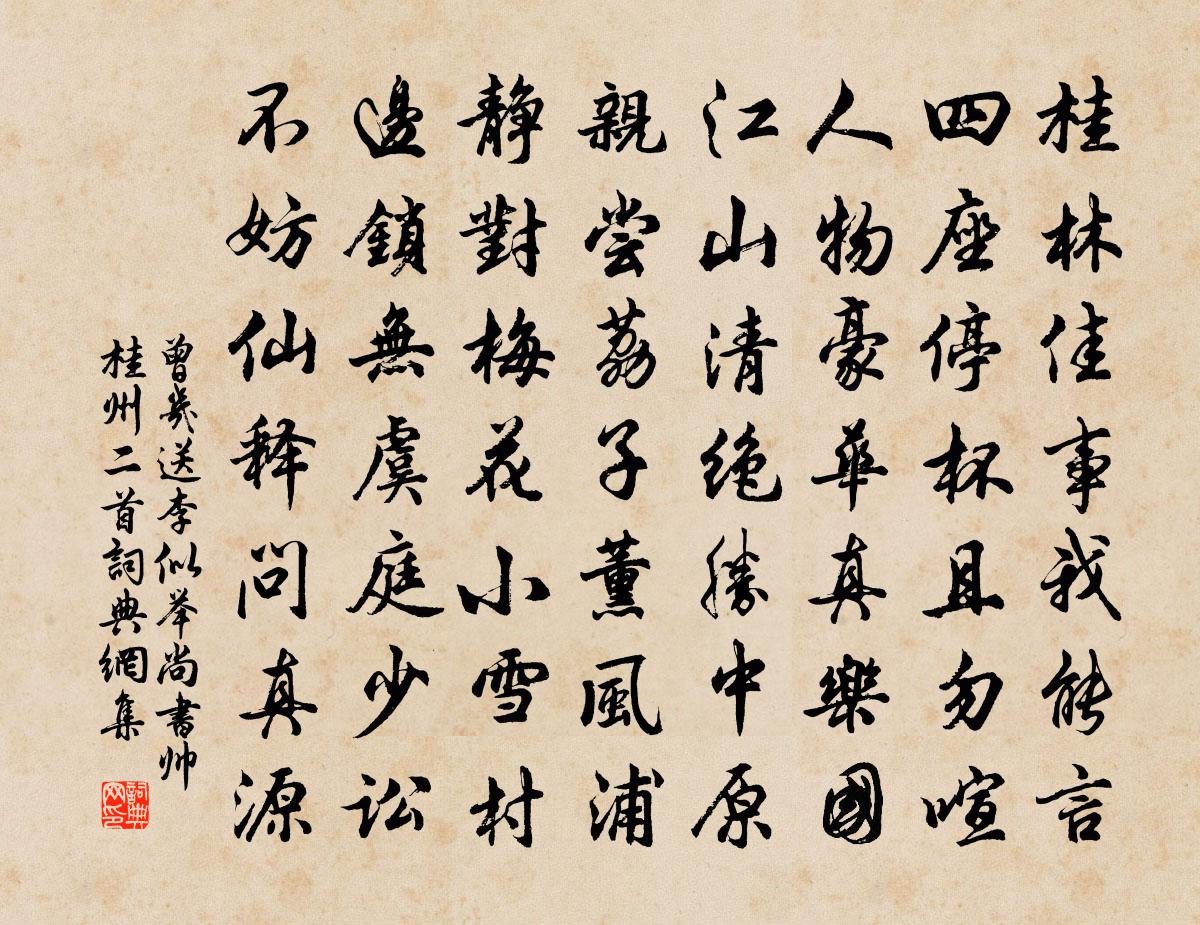 桂林佳事我能言
四座停杯且勿喧
人物豪華真樂國
江山清絶勝中原
親尝荔子薰風浦
靜對梅花小雪村
邊鎖無虞庭少訟
不妨仙释問真源
曾幾送李似举尚書帅
桂州二首詞典網集
詞典
网印